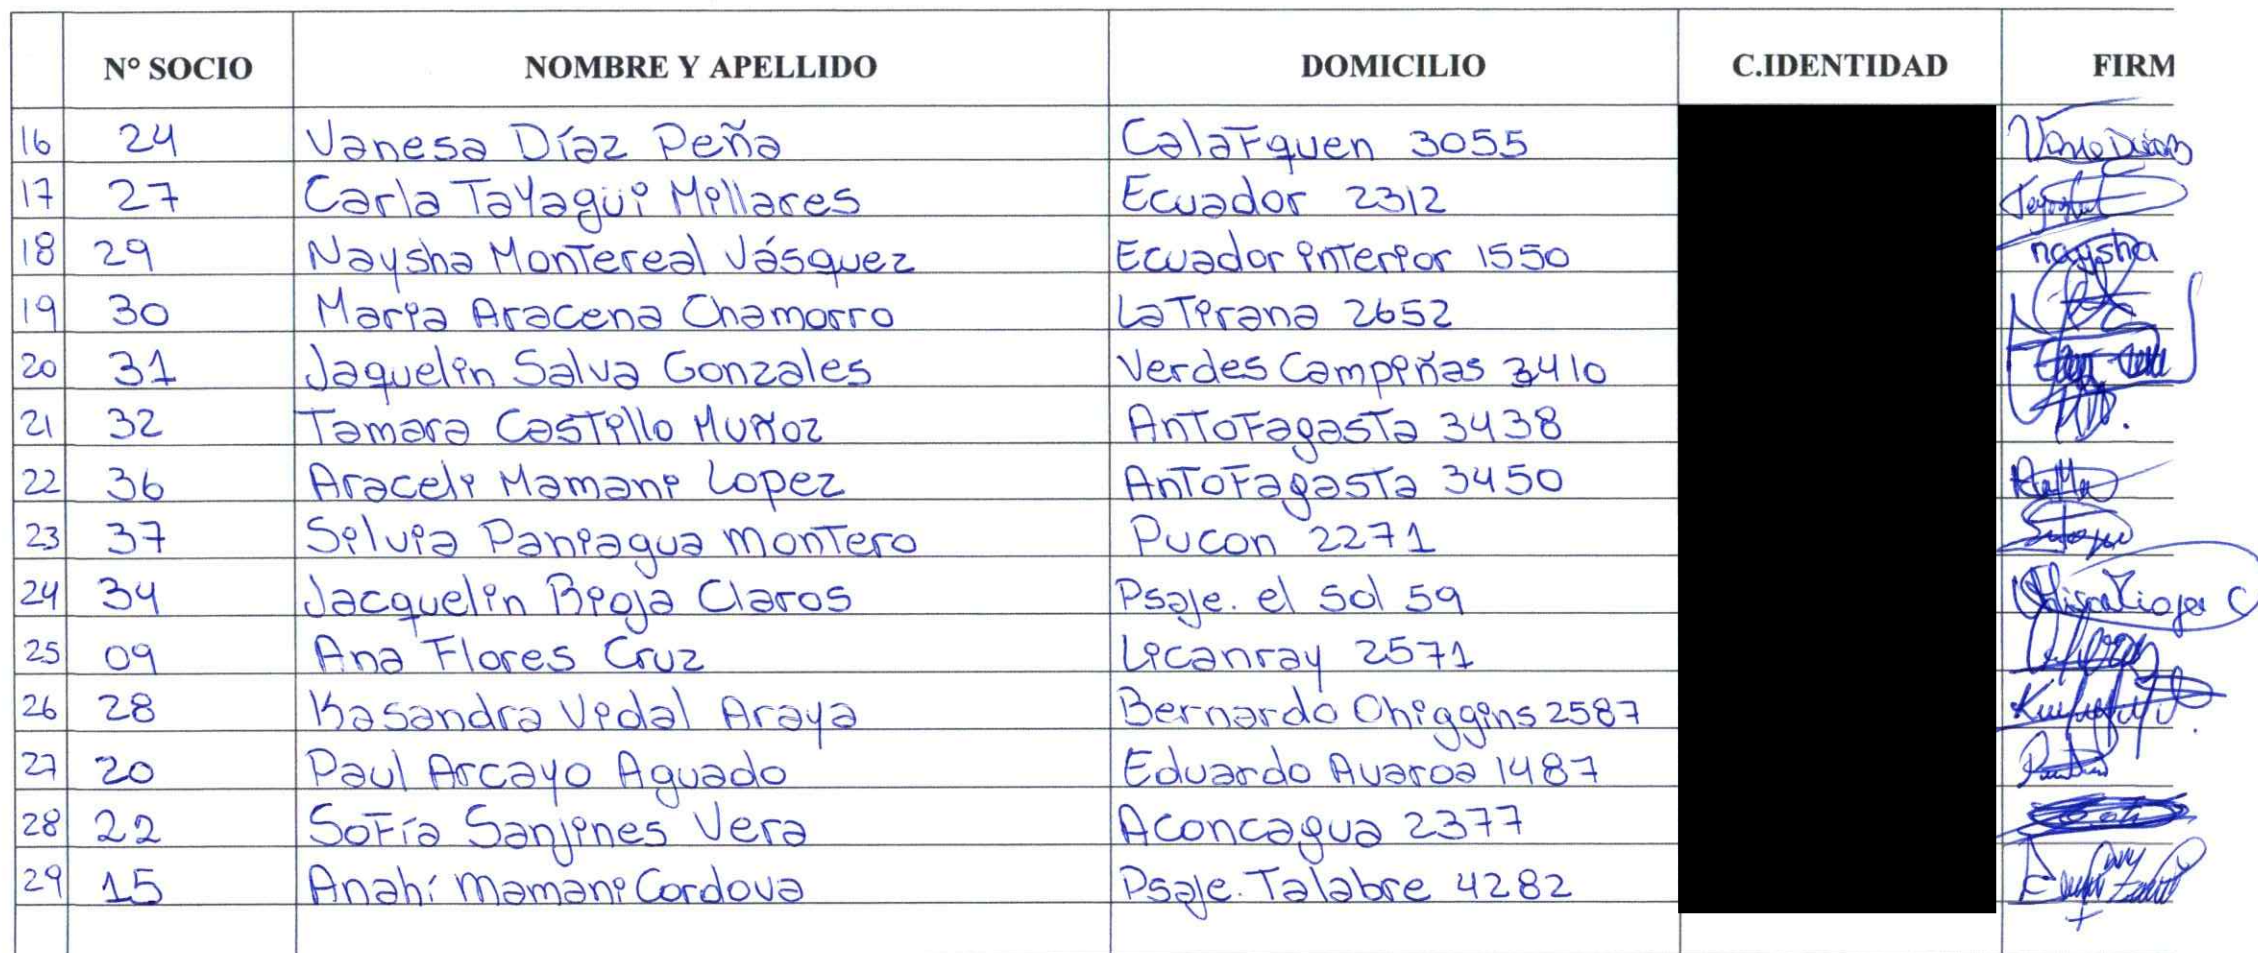 N° SOCIO NOMBRE Y APELLIDO DOMICILIO C.IDENTIDAD FIRM
16 24 Vanesa Díaz Peña Calafquen 3055
17 27 Carla Tayagui Millares Ecuador 2312
18 29 Naysha Montereal Vásquez Ecuador interior 1550 naysha
19 30 Maria Aracena Chamorro La Tirana 2652
20 31 Jaquelin Salva Gonzales Verdes Campiñas 3410
21 32 Tamara Castillo Muñoz Antofagasta 3438
22 36 Araceli Mamani Lopez Antofagasta 3450
23 37 Silvia Paniagua Montero Pucon 2271
24 34 Jacquelin Bioja Claros Psaje. el sol 59
25 09 Ana Flores Cruz Licanray 2571
26 28 Kasandra Vidal Araya Bernardo Ohiggins 2587
27 20 Paul Arcayo Aguado Eduardo Avaroa 1487
28 22 Sofía Sanjines Vera Aconcagua 2377
29 15 Anahí Mamani Cordova Psaje. Talabre 4282